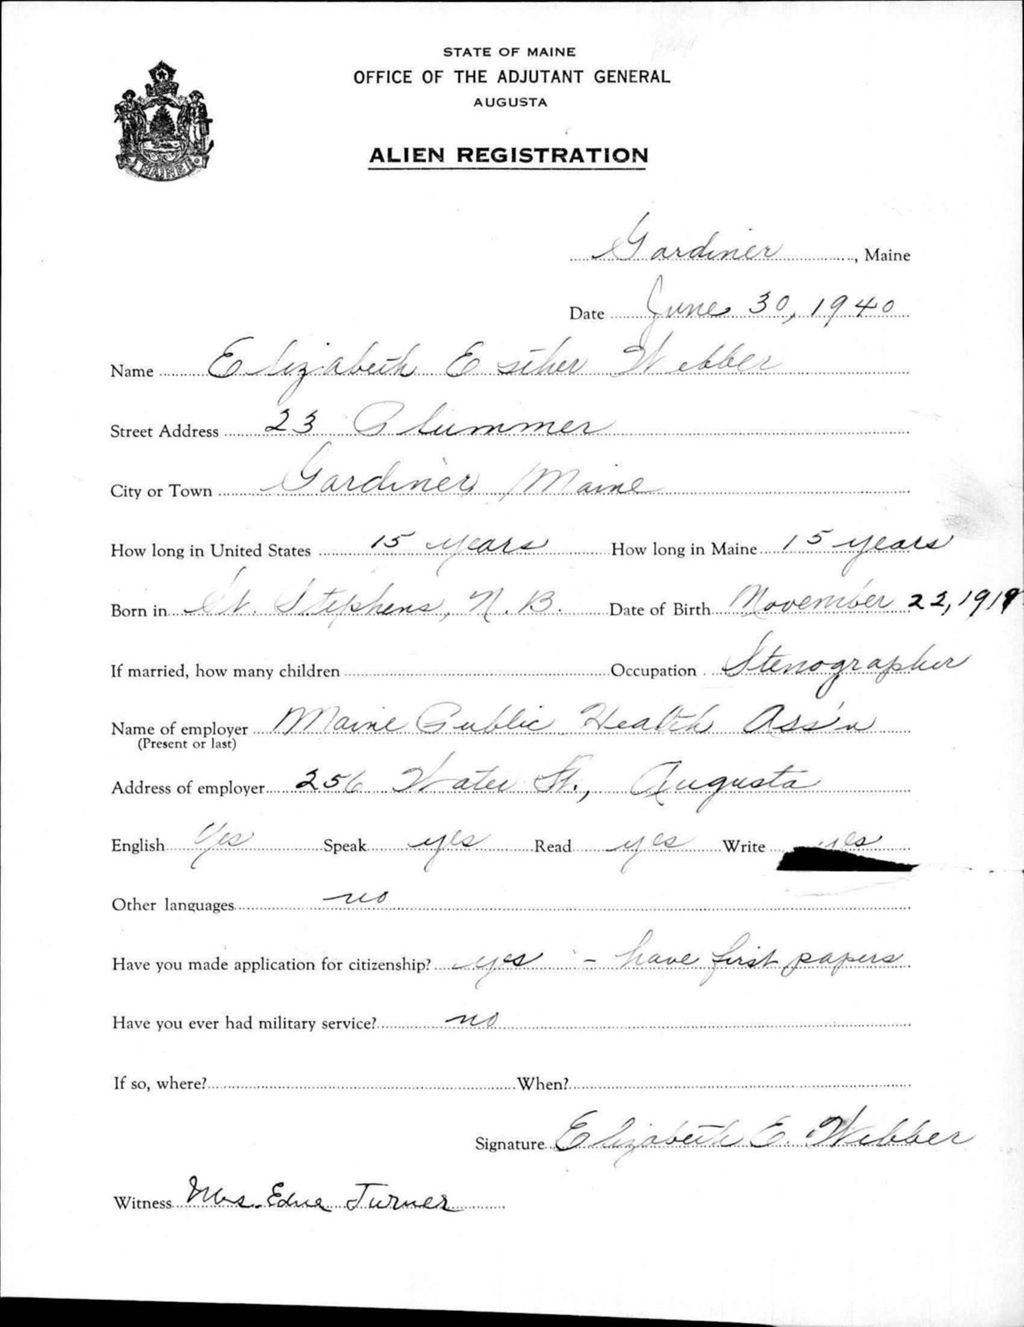 STATE OF MAINE
OFFICE OF THE ADJUTANT GENERAL
AUGUSTA
ALIEN REGISTRATION
MAINE
Gardiner, Maine
Date June 30, 1940
Name Elizabeth Esther Webber
Street Address 23 Plummer
City or Town Gardiner, Maine
How long in United States 15 years How long in Maine 15 years
Born in St. Stephens, N. B. Date of Birth November 22,
If married, how many children Occupation Stenographer
Name of employer Maine Public Health Ass'n
(Present or last)
Address of employer 256 Water St., Augusta
English Yes Speak yes Read yes Write yes
Other languages no
Have you made application for citizenship? yes - have first papers
Have you ever had military service? no
If so, where? When?
Signature Elizabeth E. Webber
Witness Mrs. Edna Turner